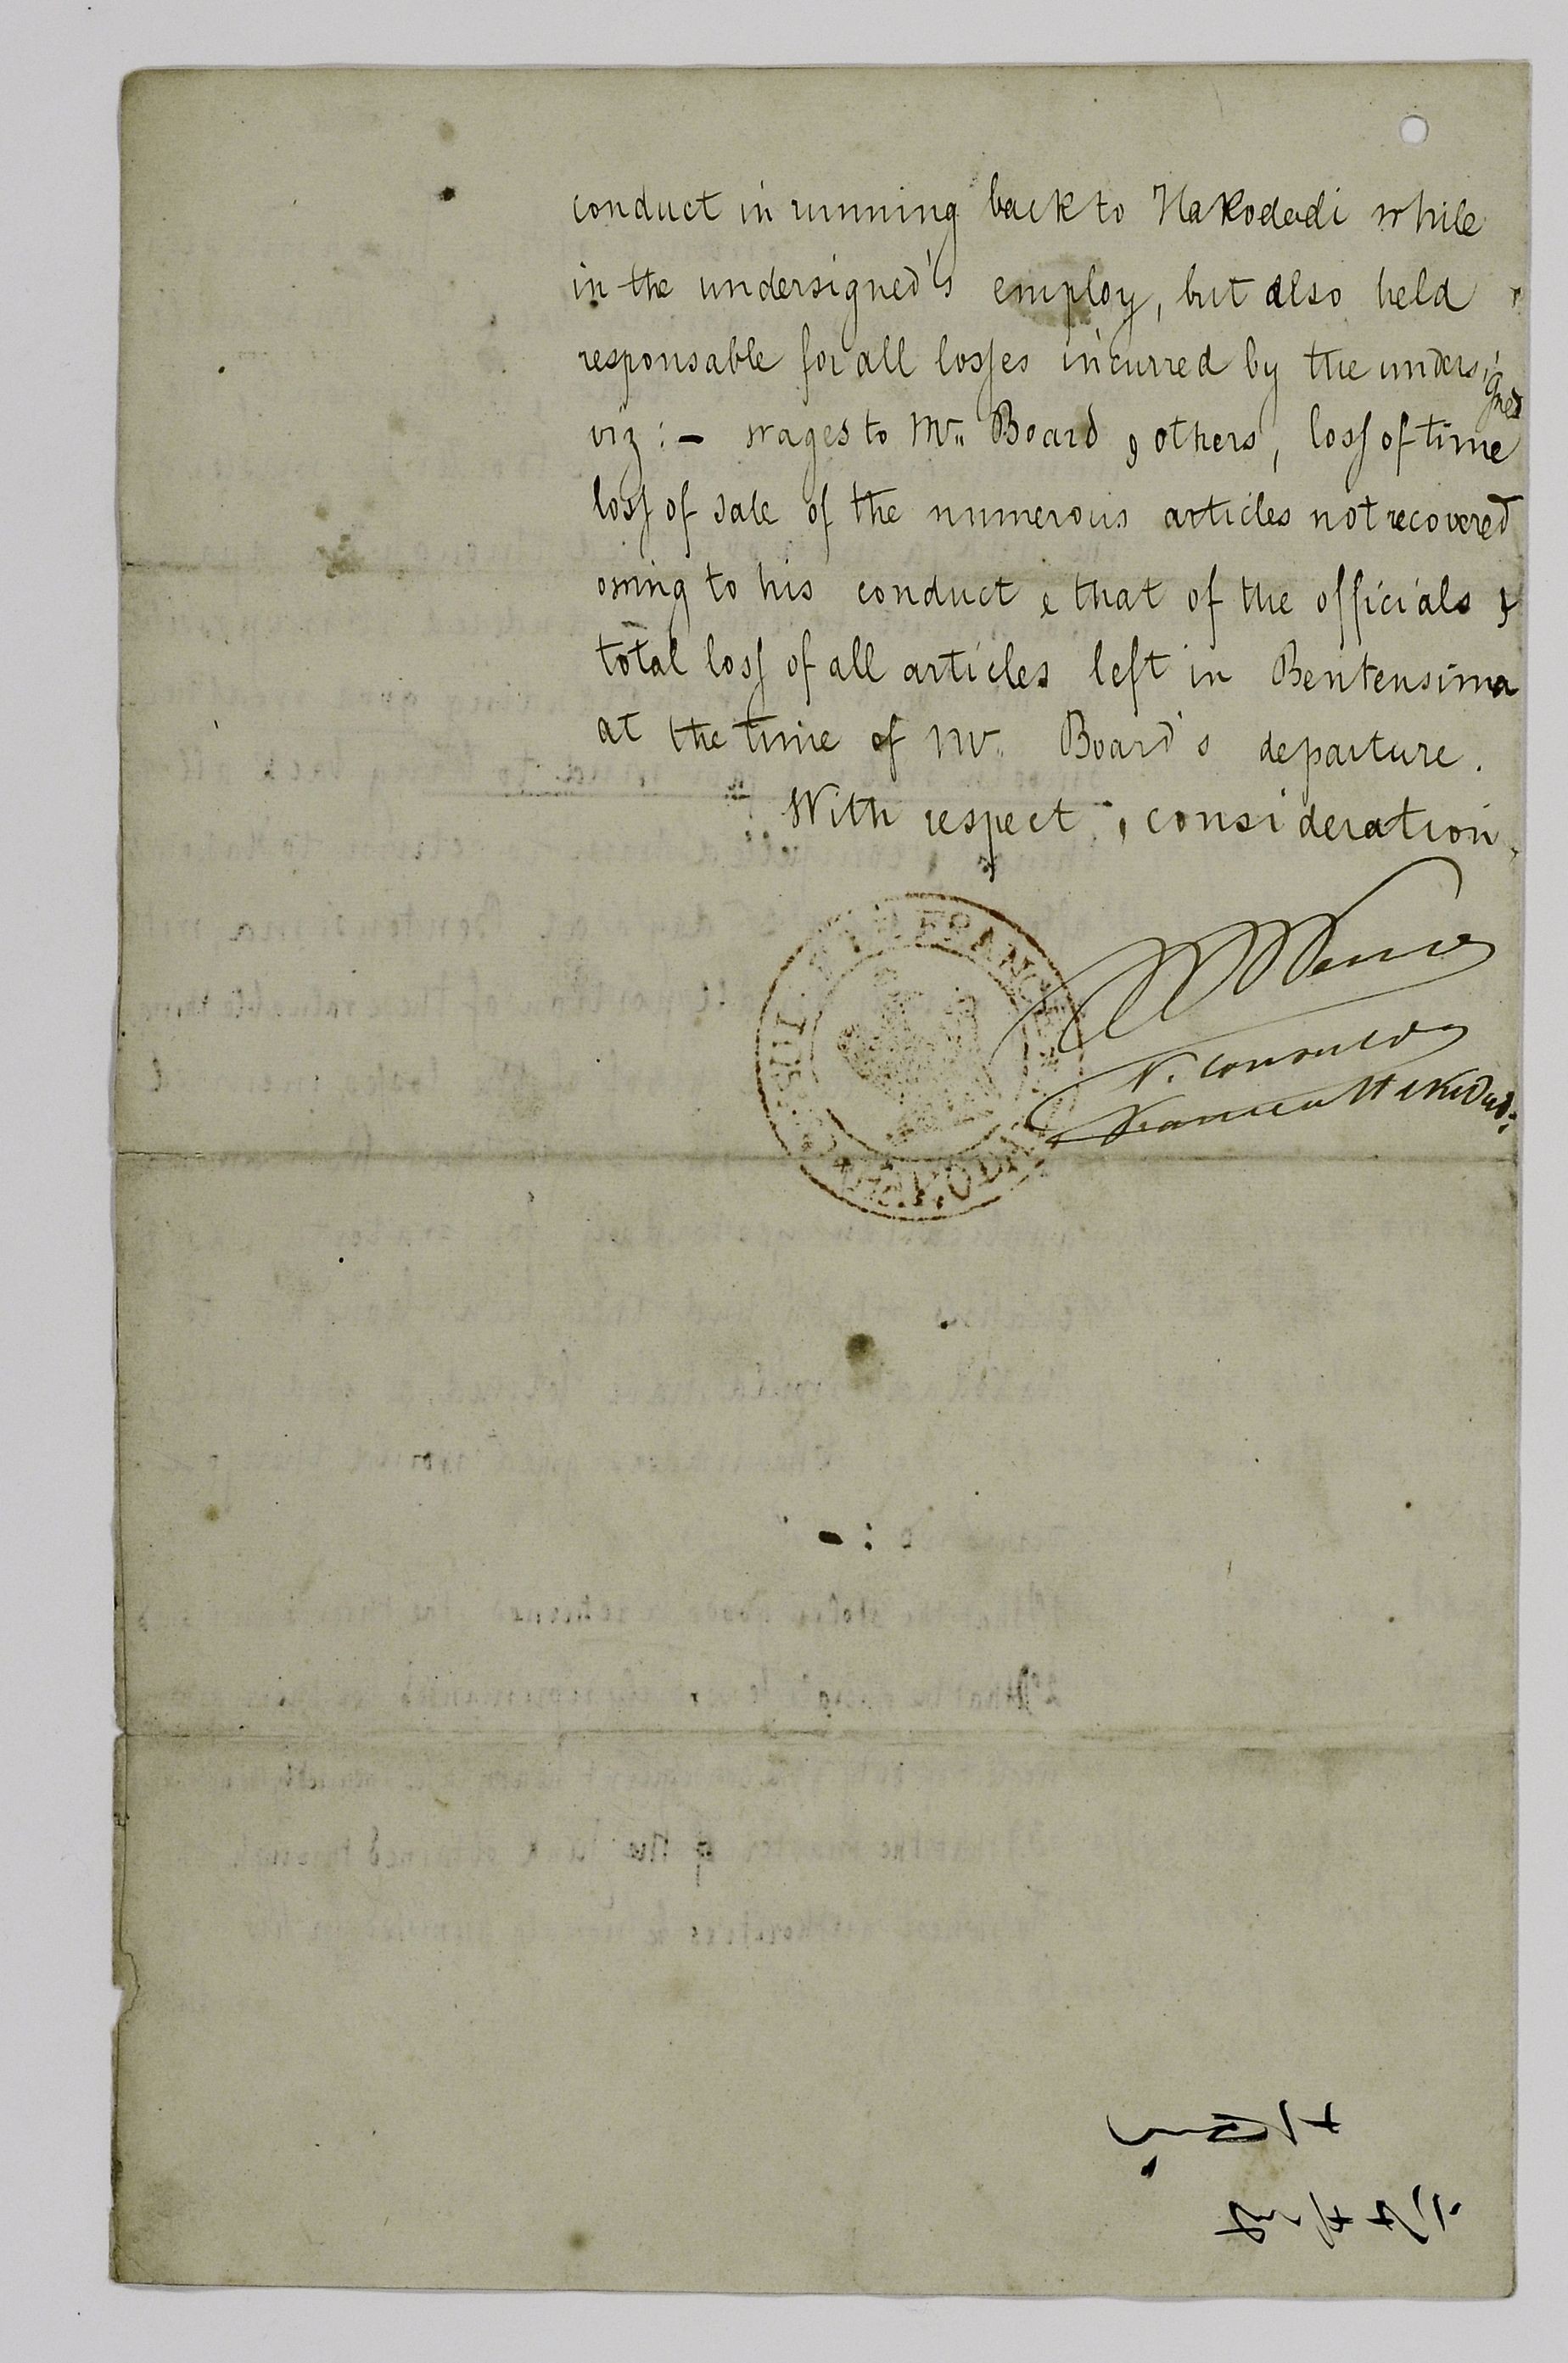 conduct in running back to Hakodadi while
in the undersigned's employ, but also held
responsable for all losses incurred by the undersigned
viz :- wages to Mr. Board & others, loss of time
loss of sale of the numerous articles not recovered
owing to his conduct & that of the officials &
total loss of all articles left in Bentensima
at the time of Mr. Board's departure.
With respect & consideration.
V. Consul de
France Hakodadi
FRANCE